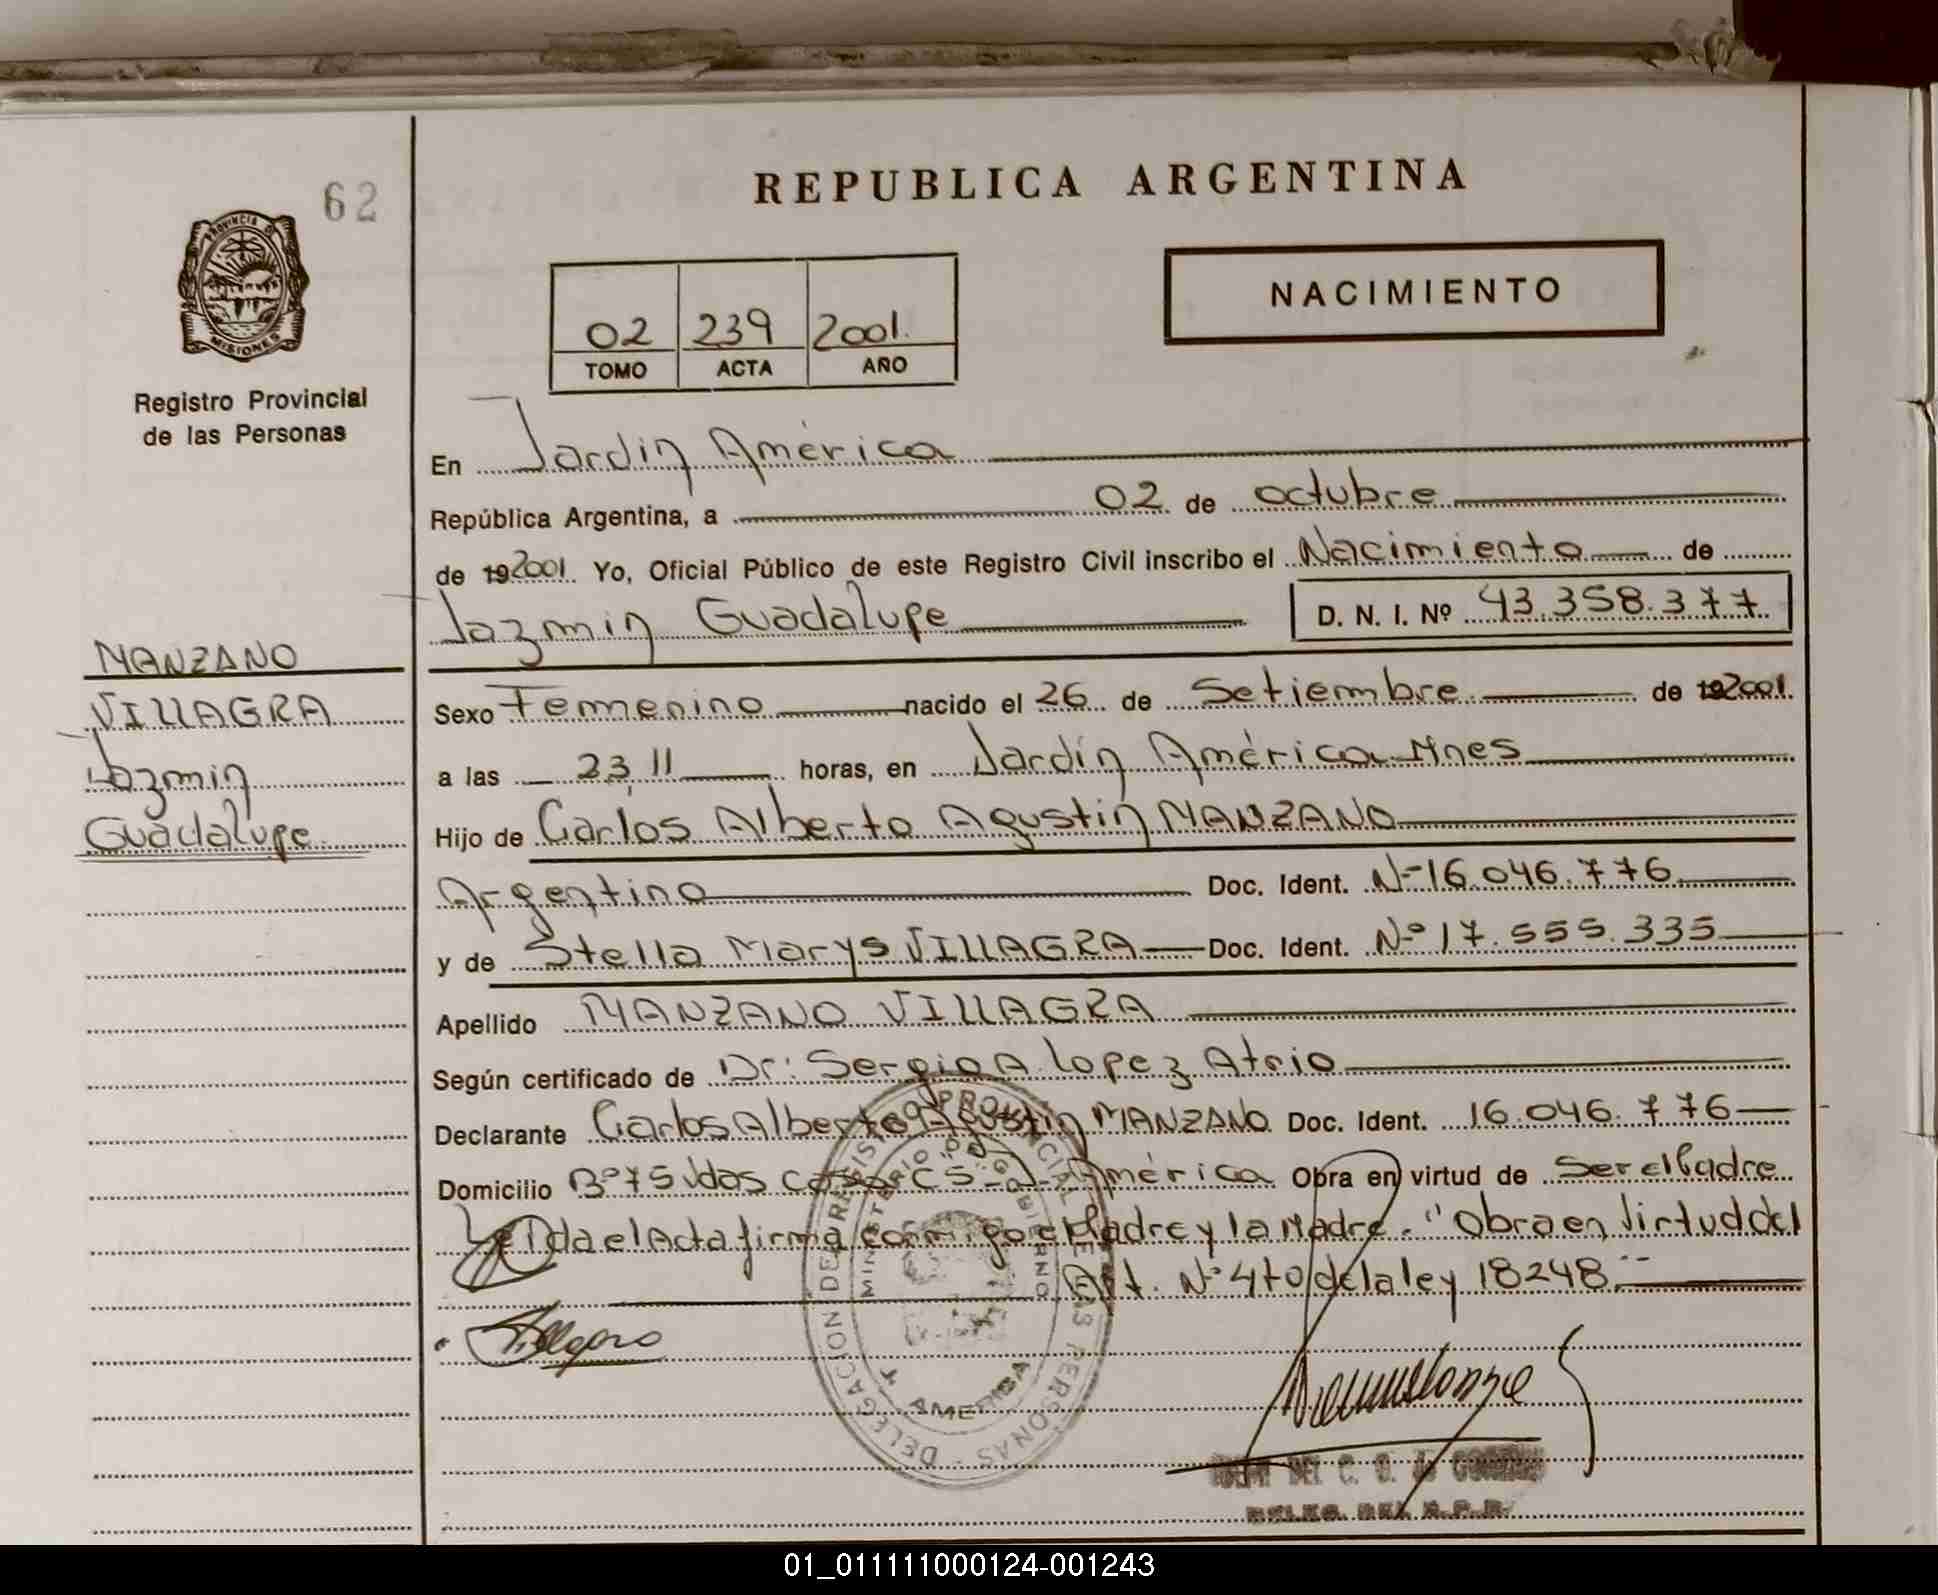 REPUBLICA ARGENTINA
62
PROVINCIA DE
MISIONES
Registro Provincial
de las Personas
NACIMIENTO
02 239 2001.
TOMO ACTA AÑO
En Jardin América
República Argentina, a 02 de octubre
de 192001. Yo, Oficial Público de este Registro Civil inscribo el Nacimiento de
Jazmin Guadalupe D. N. I. Nº 43.358.377.
MANZANO
VILLAGRA
Jazmin
Guadalupe
Sexo Femenino nacido el 26 de Setiembre de 192001.
a las 23,11 horas, en Jardín América-Mnes
Hijo de Carlos Alberto Agustín MANZANO
Argentino Doc. Ident. Nº16.046.776
y de Stella Marys VILLAGRA Doc. Ident. Nº17.555.335
Apellido MANZANO VILLAGRA
Según certificado de Dr: Sergio A. Lopez Atrio
Declarante Carlos Alberto Agustin MANZANO Doc. Ident. 16.046.776
Domicilio Bº 75 Vdas América Obra en virtud de Ser el Padre
Leida el Acta firma conmigo el Padre y la Madre. "Obra en Virtud del
Art. Nº 4to de la ley 18248."
Villagra
DELEGACION DE REGISTRO PROVINCIAL DE LAS PERSONAS
MINISTERIO DE GOBIERNO
AMERICA
DEL C. G.
DELEG. DEL R.P.P.
01_011111000124-001243